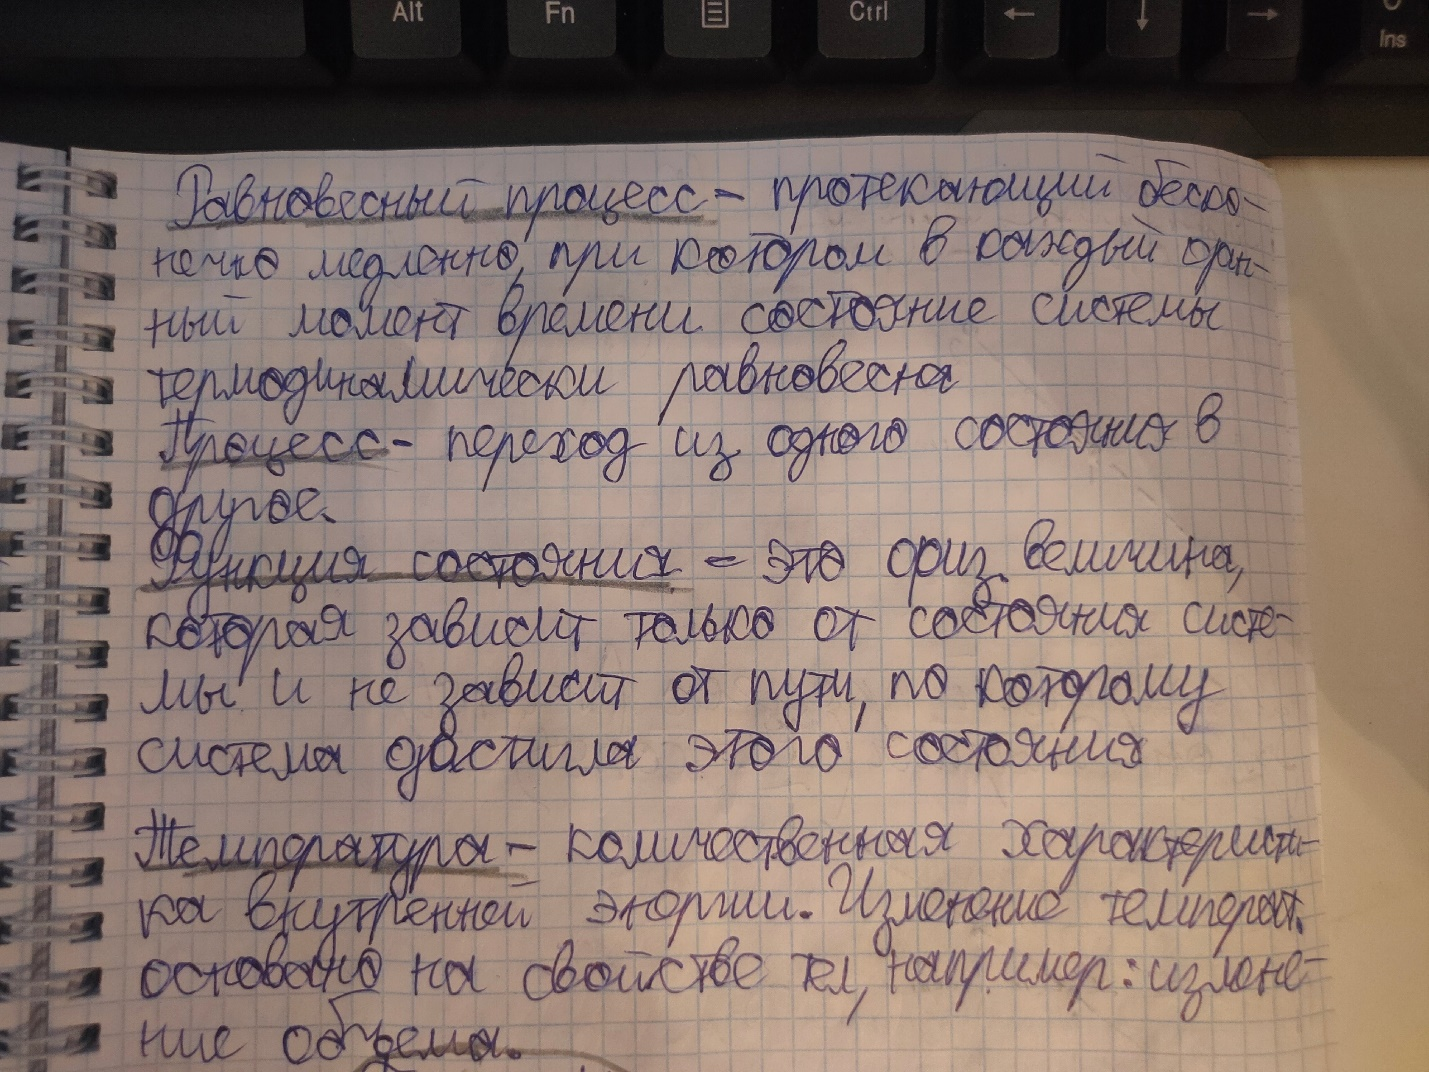 Alt Fn Ctrl ← ↓ → Ins
Равновесный процесс - протекающий беско-
нечно медленно, при котором в каждый дан-
ный момент времени состояние системы
термодинамически равновесна
Процесс - переход из одного состояния в
другое.
Функция состояния - это физ. величина,
которая зависит только от состояния систе-
мы и не зависит от пути, по которому
система достигла этого состояния
Температура - количественная характеристи-
ка внутренней энергии. Изменение температ.
основано на свойстве тел, например: измене-
ние объема.